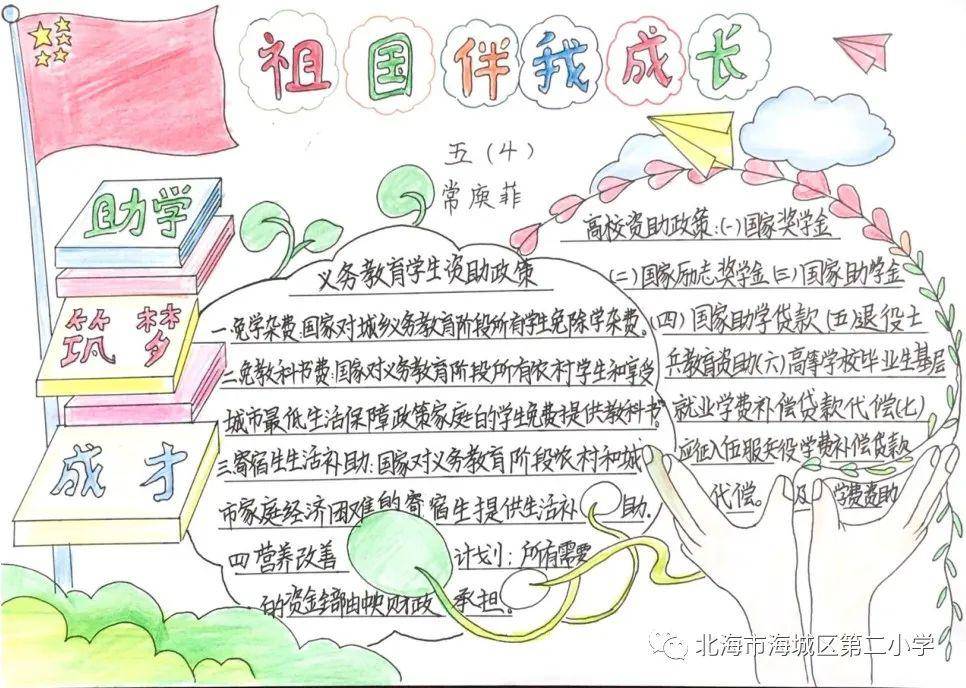 祖国伴我成长
五(4)
常庾菲
助学
筑梦
成才
义务教育学生资助政策
一免学杂费:国家对城乡义务教育阶段所有学生免除学杂费。
二免教科书费:国家对义务教育阶段所有农村学生和享受
城市最低生活保障政策家庭的学生免费提供教科书。
三寄宿生生活补助:国家对义务教育阶段农村和城
市家庭经济困难的寄宿生提供生活补助.
四营养改善计划:所有需要
的资金全部由中央财政承担。
高校资助政策:(一)国家奖学金
(二)国家励志奖学金(三)国家助学金
(四)国家助学贷款(五)退役士
兵教育资助(六)高等学校毕业生基层
就业学费补偿贷款代偿(七)
应征入伍服兵役学费补偿贷款
代偿。及学费资助
北海市海城区第二小学